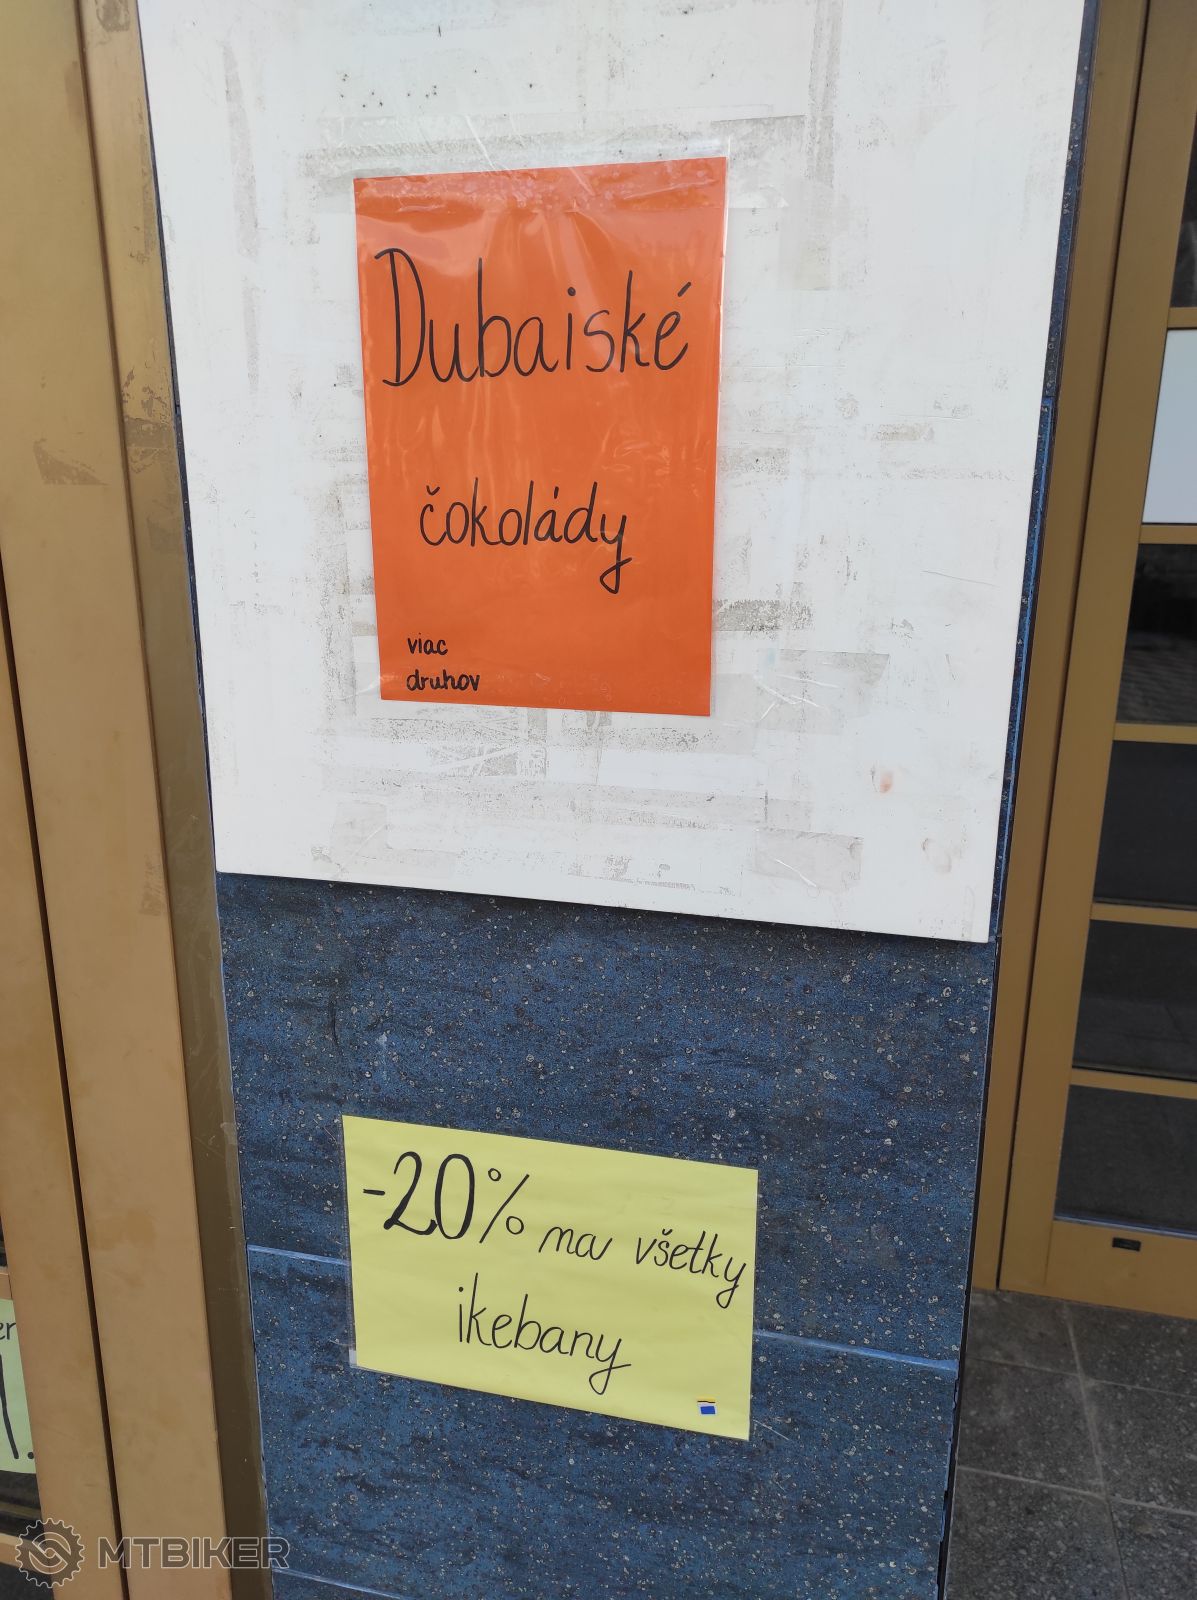 Dubaiské
čokolády
viac
druhov
-20% na všetky
ikebany
er
MTBIKER